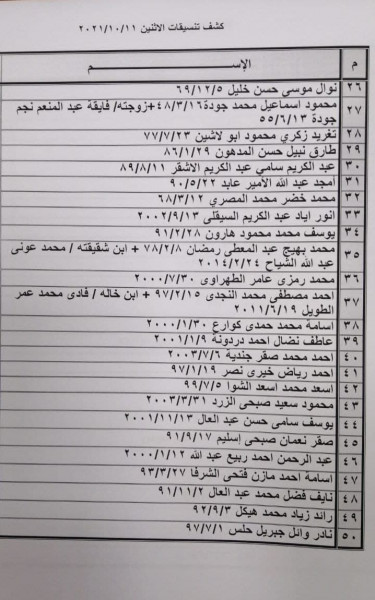 كشف تنسيقات الاثنين ٢٠٢١/١٠/١١
م الإســـــــم
٢٦ نوال موسى حسن خليل ٦٩/١٢/٥
٢٧ محمود اسماعيل محمد جودة ٤٨/٣/١٦+زوجته/ فايقة عبد المنعم نجم
جودة ٥٥/٦/١٣
٢٨ تغريد زكري محمود ابو لاشين ٧٧/٧/٢٣
٢٩ طارق نبيل حسن المدهون ٨٦/١/٢٩
٣٠ عبد الكريم سامي عبد الكريم الاشقر ٨٩/٨/١١
٣١ أمجد عبد الله الأمير عابد ٩٠/٥/٢٢
٣٢ محمد خضر محمد المصري ٦٨/٣/١٢
٣٣ انور اياد عبد الكريم السيقلى ٢٠٠٢/٩/١٣
٣٤ يوسف محمد محمود هارون ٩١/٢/٢٨
٣٥ محمد بهيج عبد المعطى رمضان ٧٨/٢/٨ + ابن شقيقته / محمد عونى
عبد الله الشياح ٢٠١٤/٢/٢٤
٣٦ محمد رمزى عامر الطهراوى ٢٠٠٠/٧/٣٠
٣٧ احمد مصطفى محمد النجدى ٩٧/٢/١٥ + ابن خاله / فادى محمد عمر
الطويل ٢٠١١/٦/١٩
٣٨ اسامة محمد حمدى كوارع ٢٠٠٠/١/٣٠
٣٩ عاطف نضال احمد دردونة ٢٠٠١/١/٩
٤٠ احمد محمد صقر جندية ٢٠٠٣/٧/٦
٤١ احمد رياض خيرى نصر ٩٧/١/١٩
٤٢ اسعد محمد اسعد الشوا ٩٩/٧/٥
٤٣ محمود سعيد صبحى الزرد ٢٠٠٣/٣/٣١
٤٤ يوسف سامى حسن عبد العال ٢٠٠١/١١/١٣
٤٥ صقر نعمان صبحى إسليم ٩١/٩/١٧
٤٦ عبد الرحمن احمد ربيع عبد الله ٢٠٠٠/١/١٢
٤٧ اسامة احمد مازن فتحى الشرفا ٩٣/٣/٢٧
٤٨ نايف فضل محمد عبد العال ٩١/١١/٢
٤٩ رائد زياد محمد هيكل ٩٢/٩/٣
٥٠ نادر وائل جبريل حلس ٩٧/٧/١